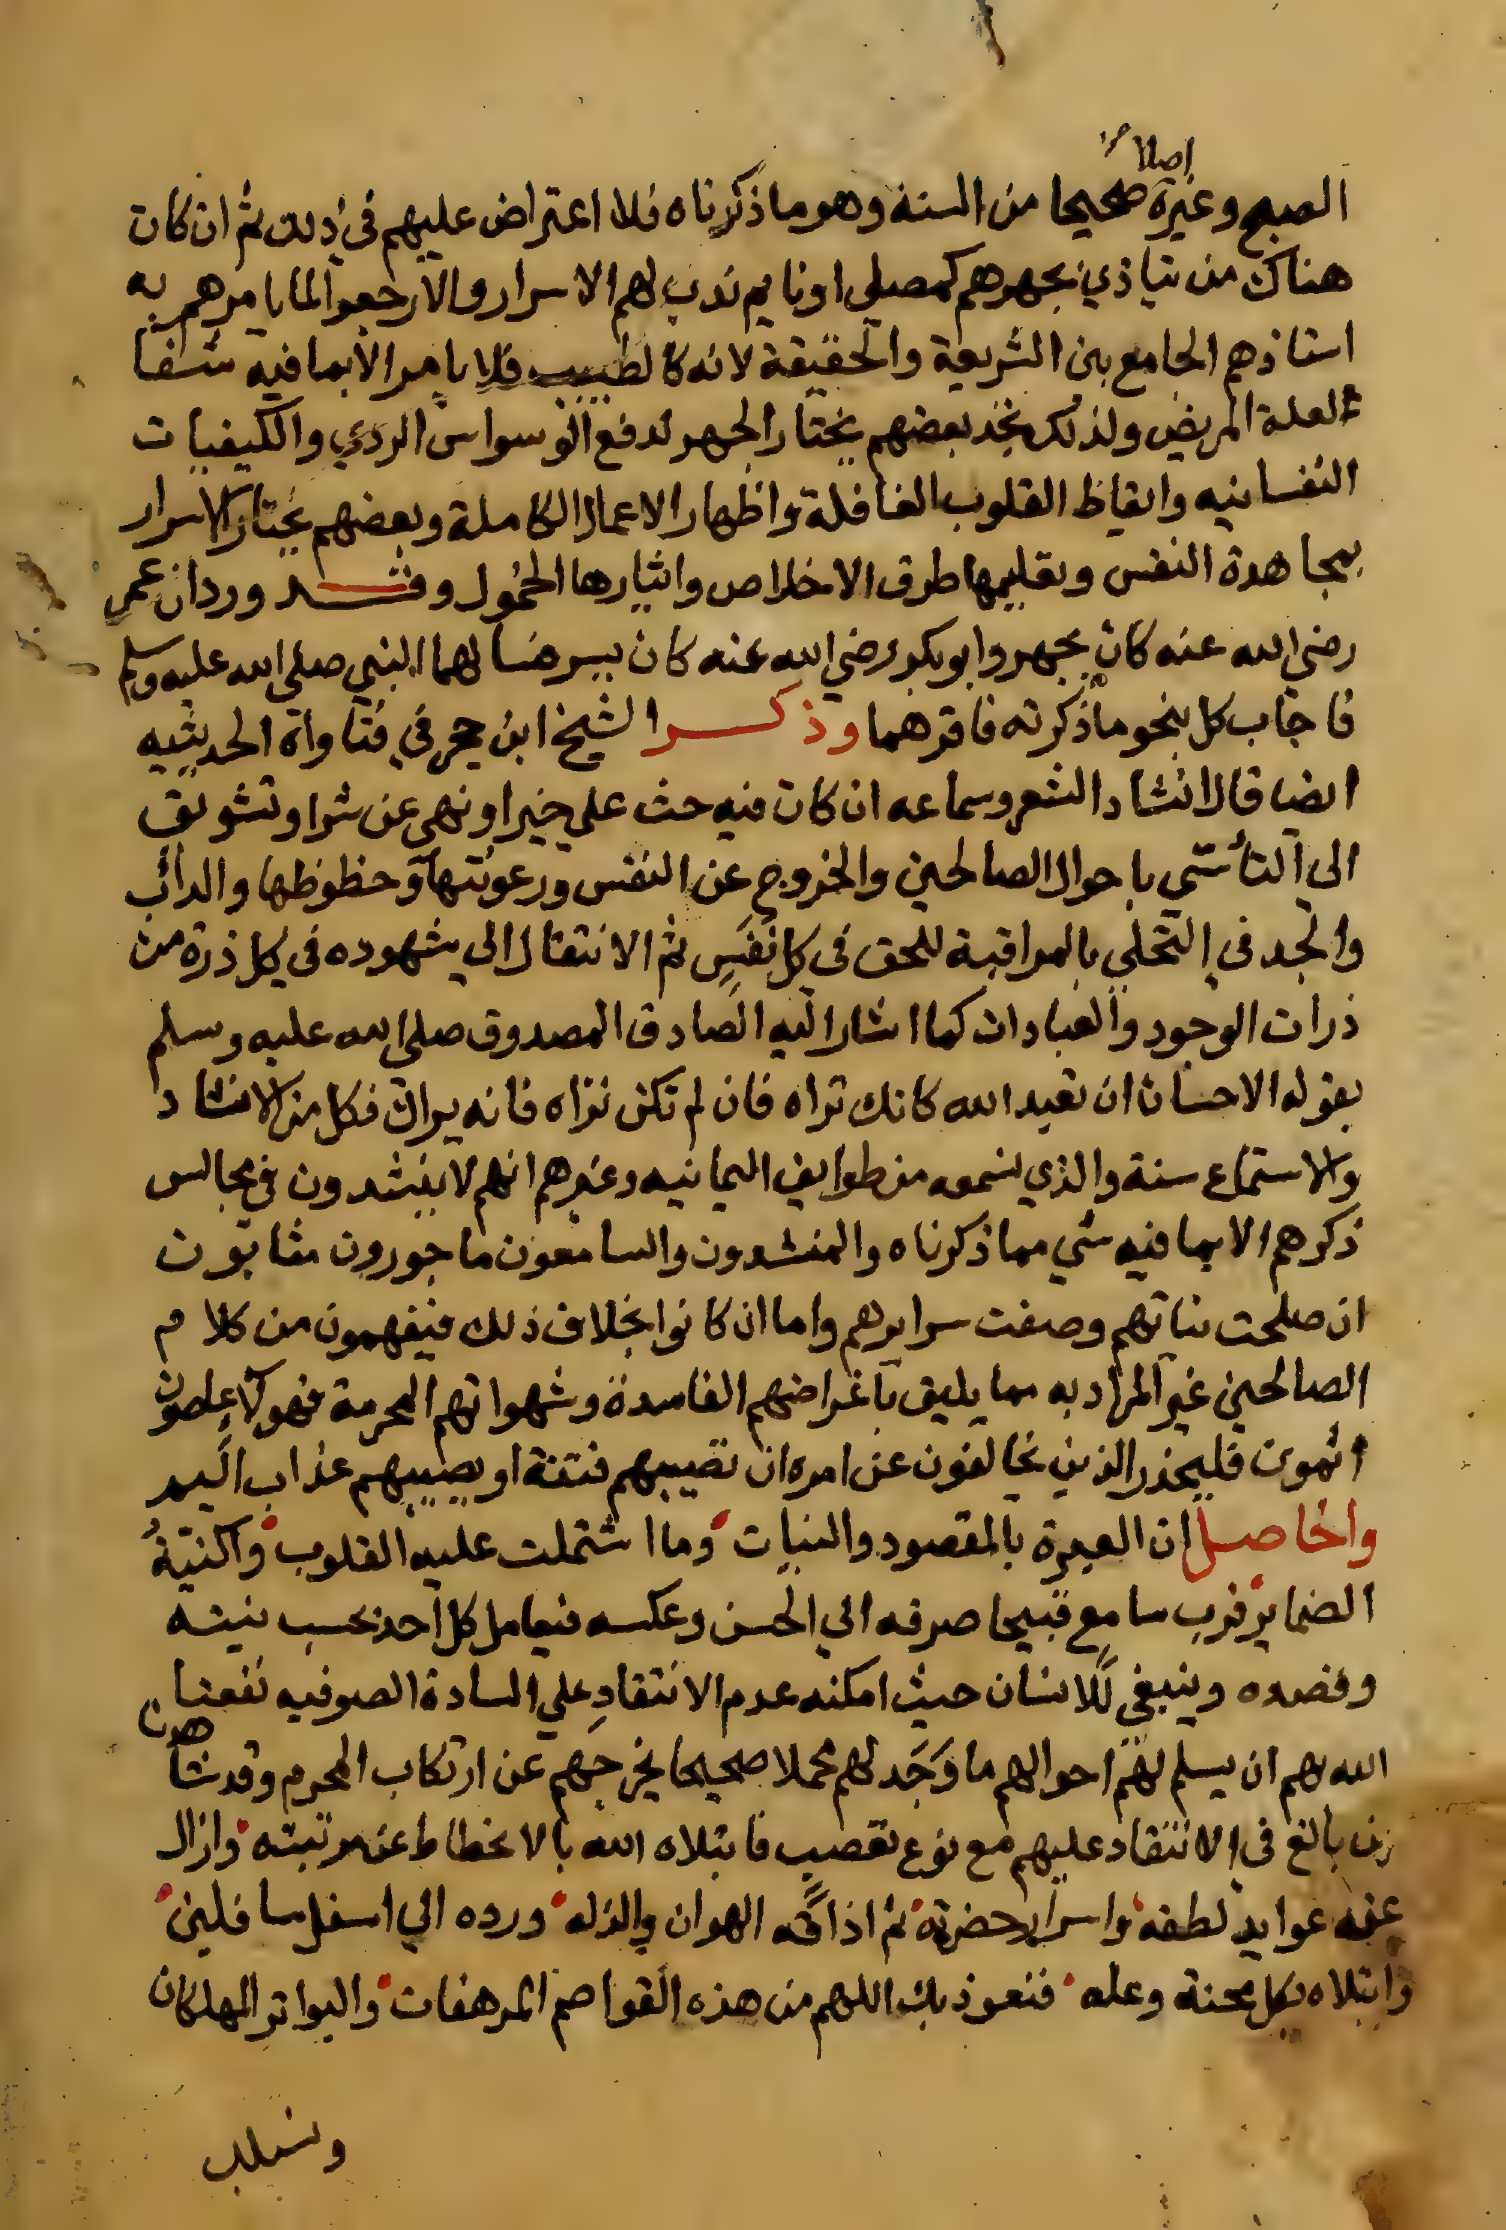 اصلا صح
الصبح وغيره صحيحا من السنة وهو ما ذكرناه فلا اعتراض عليهم في ذلك ثم ان كان
هناك من يتاذي بجهرهم كمصلي او نايم ندب لهم الاسرار والا رجعوا لما يامرهم به
استاذهم الجامع بين الشريعة والحقيقة لانه كالطبيب فلا يامر الا بما فيه شفا
العلة المريض ولذلك تجد بعضهم يختار الجهر لدفع الوسواس الردي والكيفيات
النفسانيه وايقاظ القلوب الغافلة واظهار الاعمال الكاملة وبعضهم يختار الاسرار
بمجاهدة النفس وتعليمها طرق الاخلاص وايثارها الخمول وقد ورد ان عمر
رضي الله عنه كان يجهر وابو بكر رضي الله عنه كان يسر فسالهما النبي صلي الله عليه وسلم
فاجاب كل بنحو ما ذكرته فاقرهما وذكر الشيخ ابن حجر في فتاواه الحديثيه
ايضا قال انشاد الشعر وسماعه ان كان فيه حث علي خير او نهي عن شر او تشويق
الي التأسي باحوال الصالحين والخروج عن النفس ورعونتها وحظوظها والدأب
والجد في التحلي بالمراقبة للحق في كل نفس ثم الانتقال الي شهوده في كل ذرة من
ذرات الوجود والعبادات كما اشار اليه الصادق المصدوق صلي الله عليه وسلم
بقوله الاحسان ان تعبد الله كانك تراه فان لم تكن تراه فانه يراك فكل من الانشاد
والاستماع سنة والذي نسمعه من طوايف اليمانيه وغيرهم انهم لا ينشدون في مجالس
ذكرهم الا بما فيه شي مما ذكرناه والمنشدون والسامعون ماجورون مثابون
ان صلحت نياتهم وصفت سرايرهم واما ان كانوا بخلاف ذلك فيفهمون من كلام
الصالحين غير المراد به مما يليق باغراضهم الفاسدة وشهواتهم المحرمة فهولا عاصون
اثمون فليحذر الذين يخالفون عن امره ان تصيبهم فتنة او يصيبهم عذاب اليم
والحاصل ان العبرة بالمقصود والنيات وما اشتملت عليه القلوب واكنته
الضماير فرب سامع قبيحا صرفه الي الحسن وعكسه فيعامل كل احد بحسب نيته
وقصده وينبغي للانسان حيث امكنه عدم الانتقاد علي السادة الصوفيه نفعنا
الله بهم ان يسلم لهم احوالهم ما وجد لهم محملا صحيحا يخرجهم عن ارتكاب المحرم وقد شاهدنا
من بالغ في الانتقاد عليهم مع نوع تعصب فابتلاه الله بالانحطاط عن مرتبته وازال
عنه عوايد لطفه واسرار حضرته ثم اذاقه الهوان والذله ورده الي اسفل سافلين
وابتلاه بكل محنة وعله فنعوذ بك اللهم من هذه القواصم المرهفات والبواتر المهلكات
ونسلك